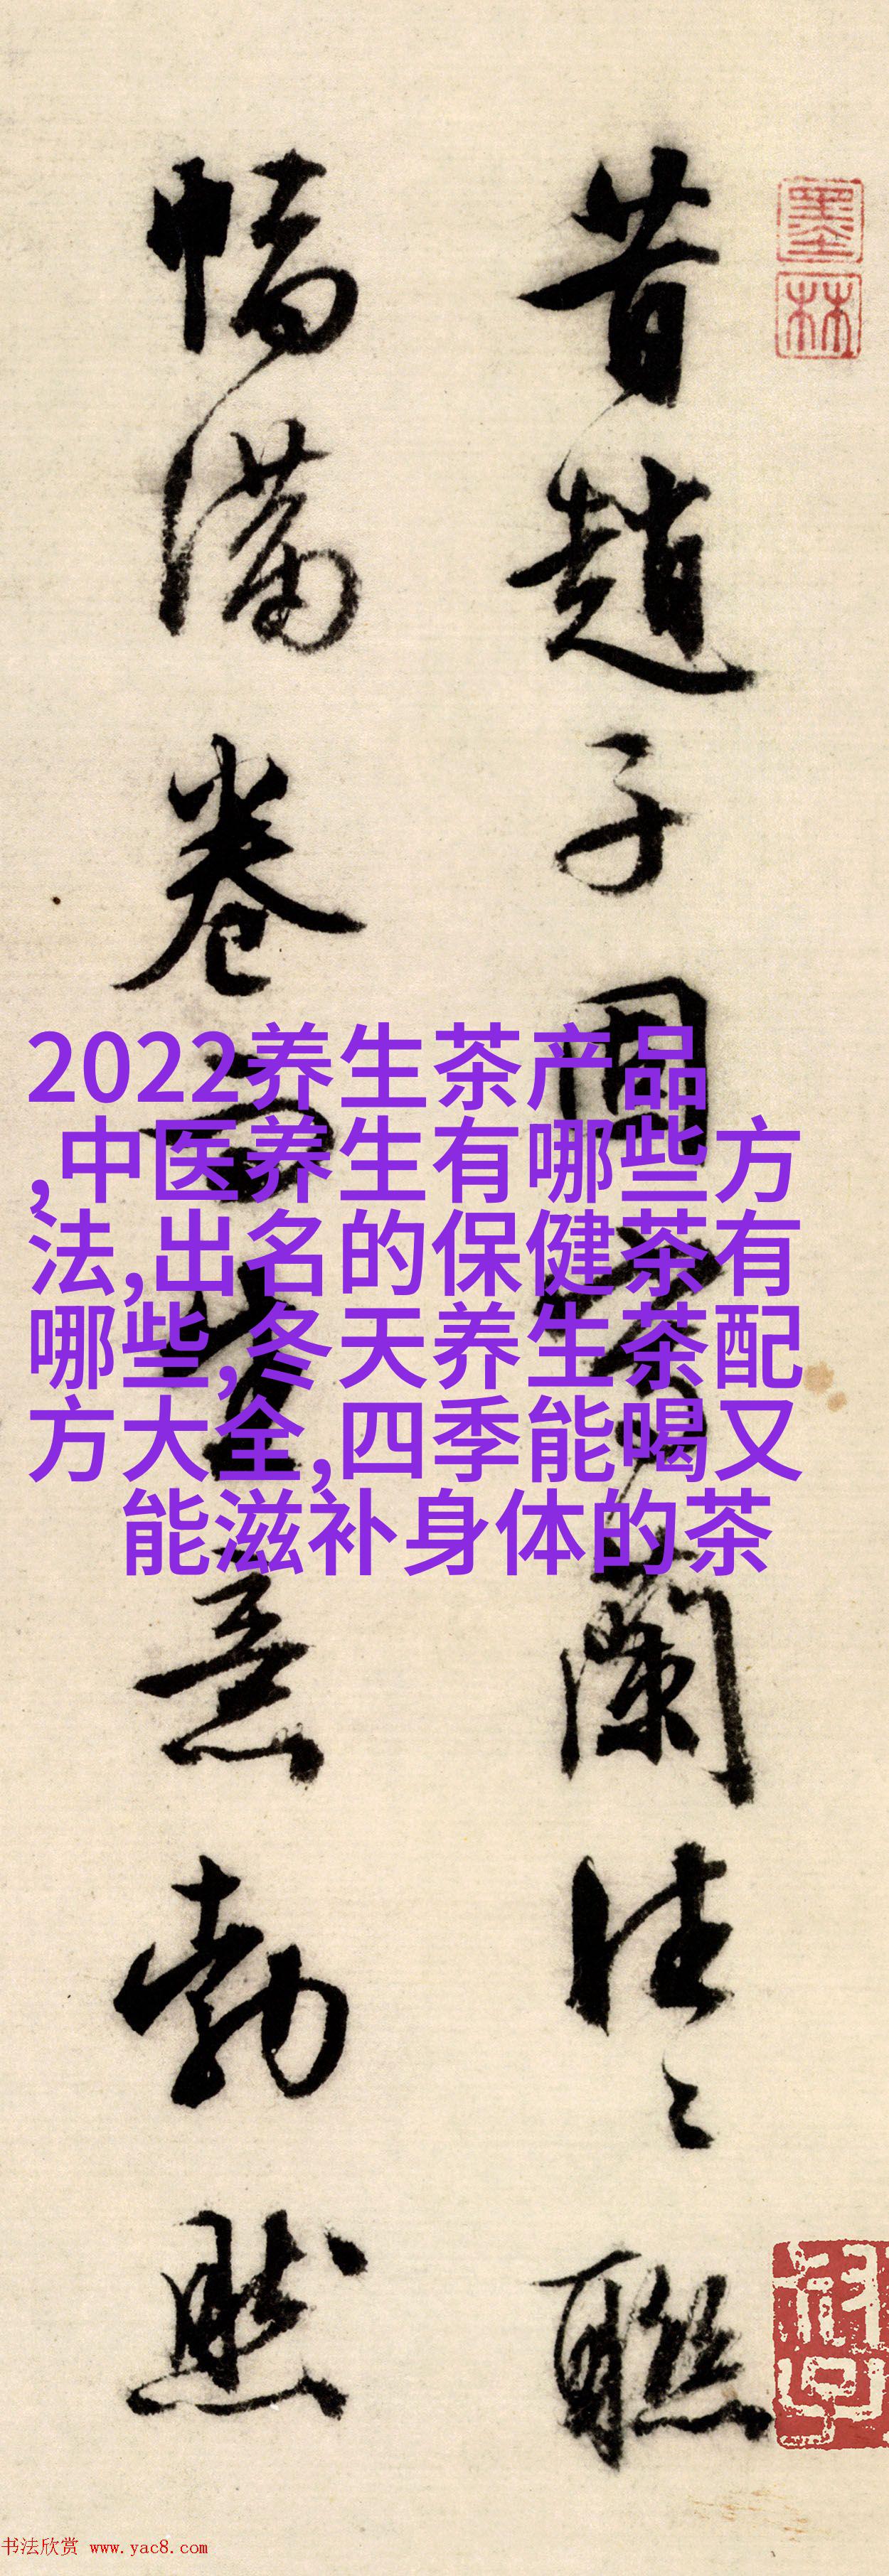 昔趙子固寫蘭往〻聯
幅滿卷而生意勃然
墨林
2022养生茶产品
,中医养生有哪些方
法,出名的保健茶有
哪些,冬天养生茶配
方大全,四季能喝又
能滋补身体的茶
书法欣赏 www.yac8.com